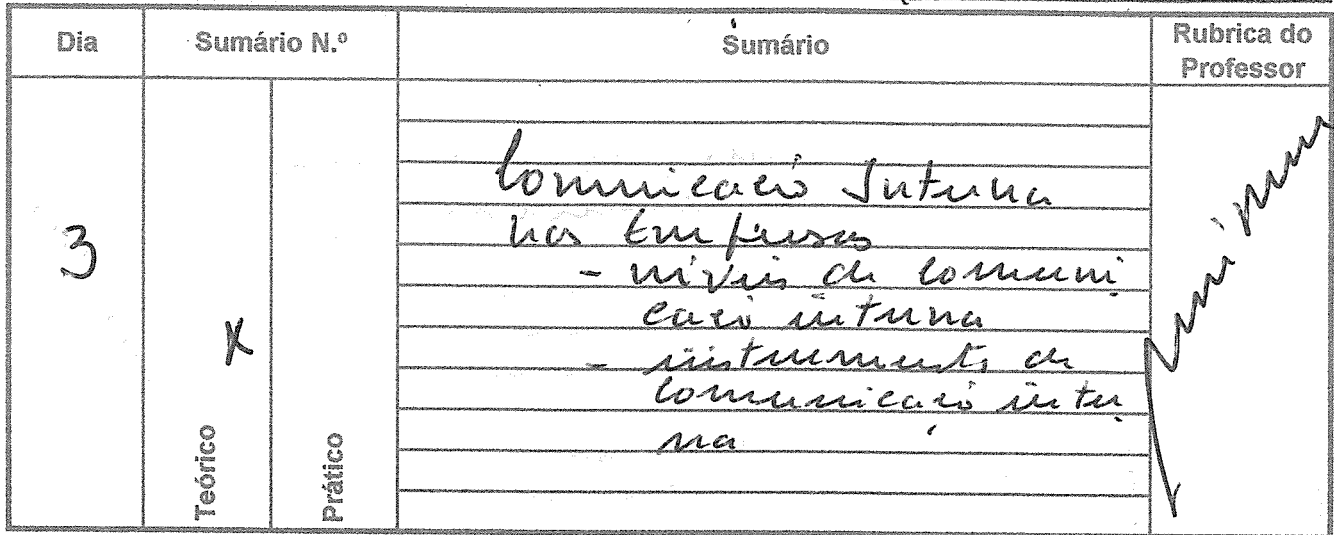 Dia
Sumário N.º
Sumário
Rubrica do
Professor
3
X
Teórico
Prático
Comunicação Interna
nas Empresas
- níveis de comuni
cação interna
- instrumentos de
comunicação inter
na